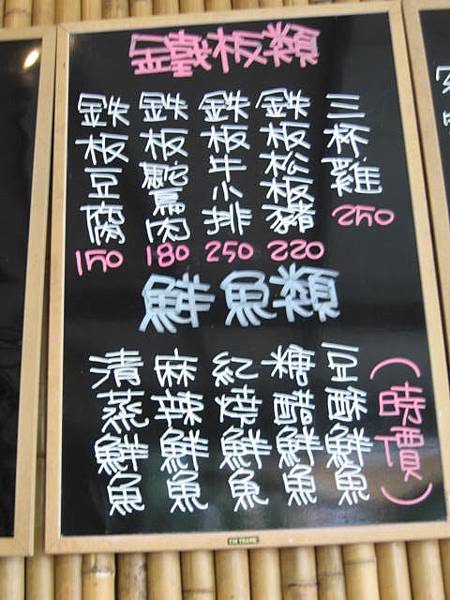 鐵板類
三杯雞 250
鉄板松板豬 220
鉄板牛小排 250
鉄板鴕鳥肉 180
鉄板豆腐 150
鮮魚類
（時價）
豆酥鮮魚
糖醋鮮魚
紅燒鮮魚
麻辣鮮魚
清蒸鮮魚